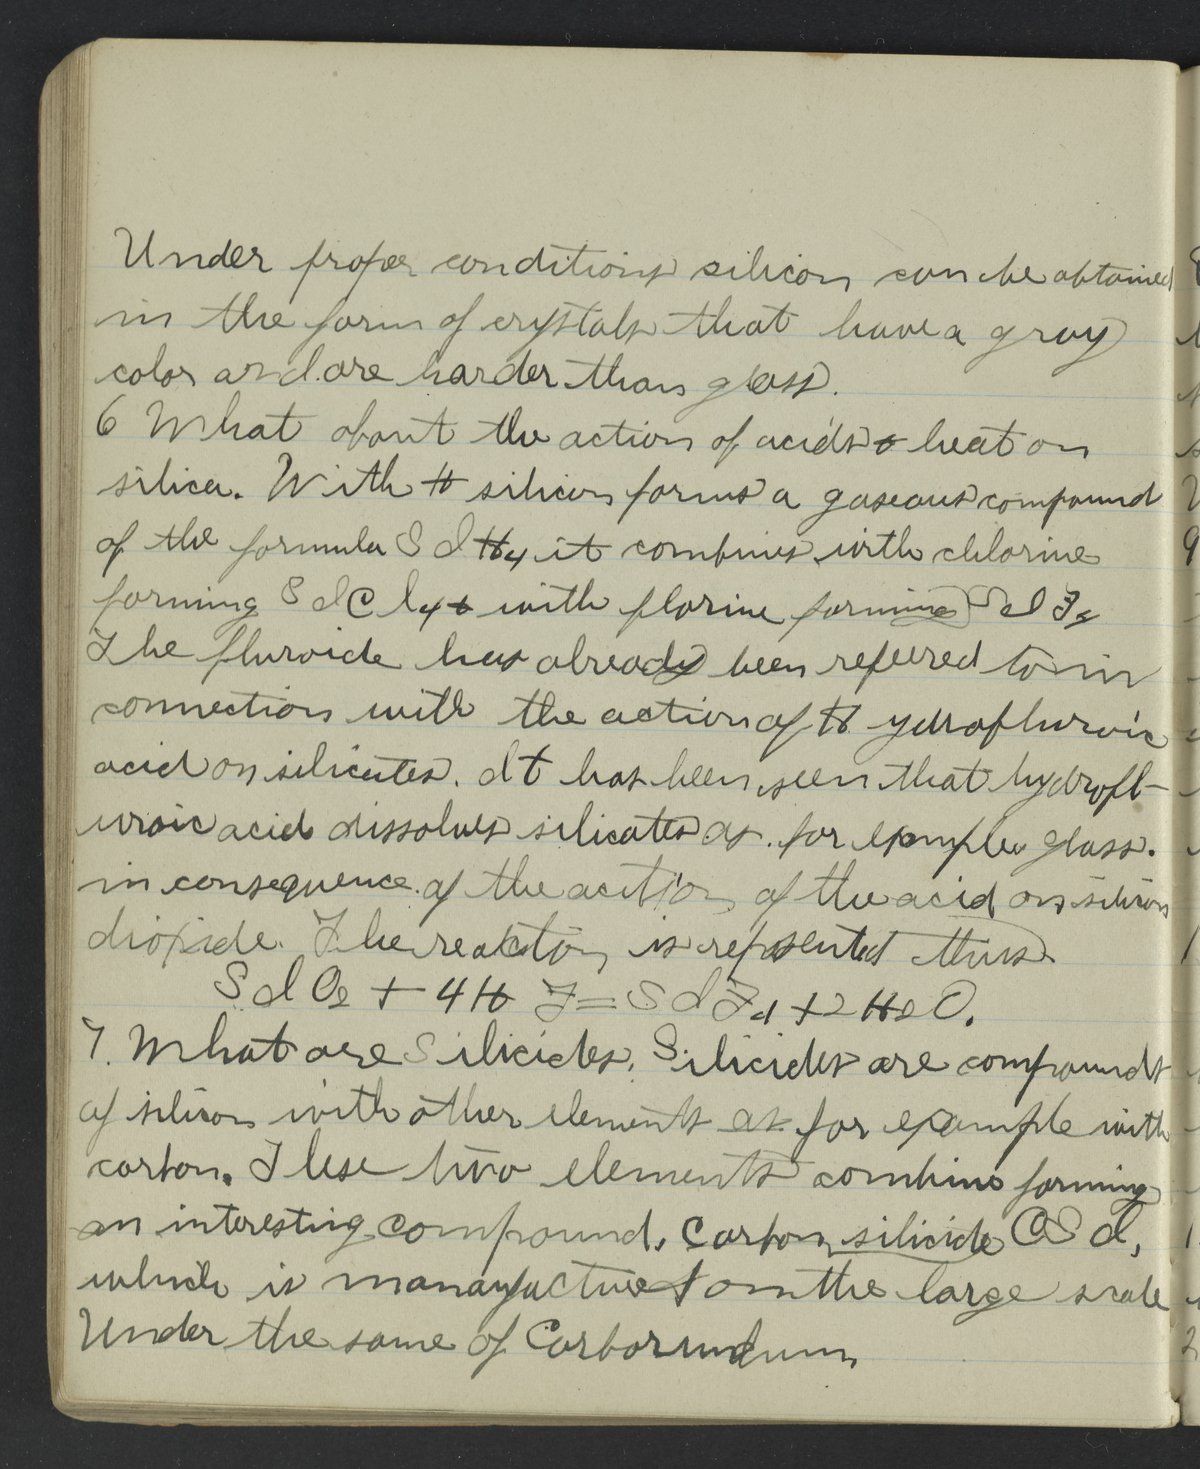 Under proper conditions silicon can be obtained
in the form of crystals that have a gray
color and are harder than glass.
6 What about the action of acids & heat on
silica. With H silicon forms a gaseous compound
of the formula S I H4 it combines with chlorine
forming S I C l4 & with florine forming S I F4
The fluroide has already been refered to in
connection with the action of H ydrofluroic
acid on silicates. It has been seen that hydrofl-
uroic acid dissolves silicates as for example glass.
in consequence of the action of the acid on silicon
dioxide. The reaction is repsented thus
S I O2 + 4 H F = S I F4 + 2 H2 O.
7. What are Silicides. Silicides are compounds
of silicon with other elements as for example with
carbon. These two elements combine forming
an interesting compound, Carbon silicide C S I,
which is manayfactured on the large scale
Under the same of Carborundum